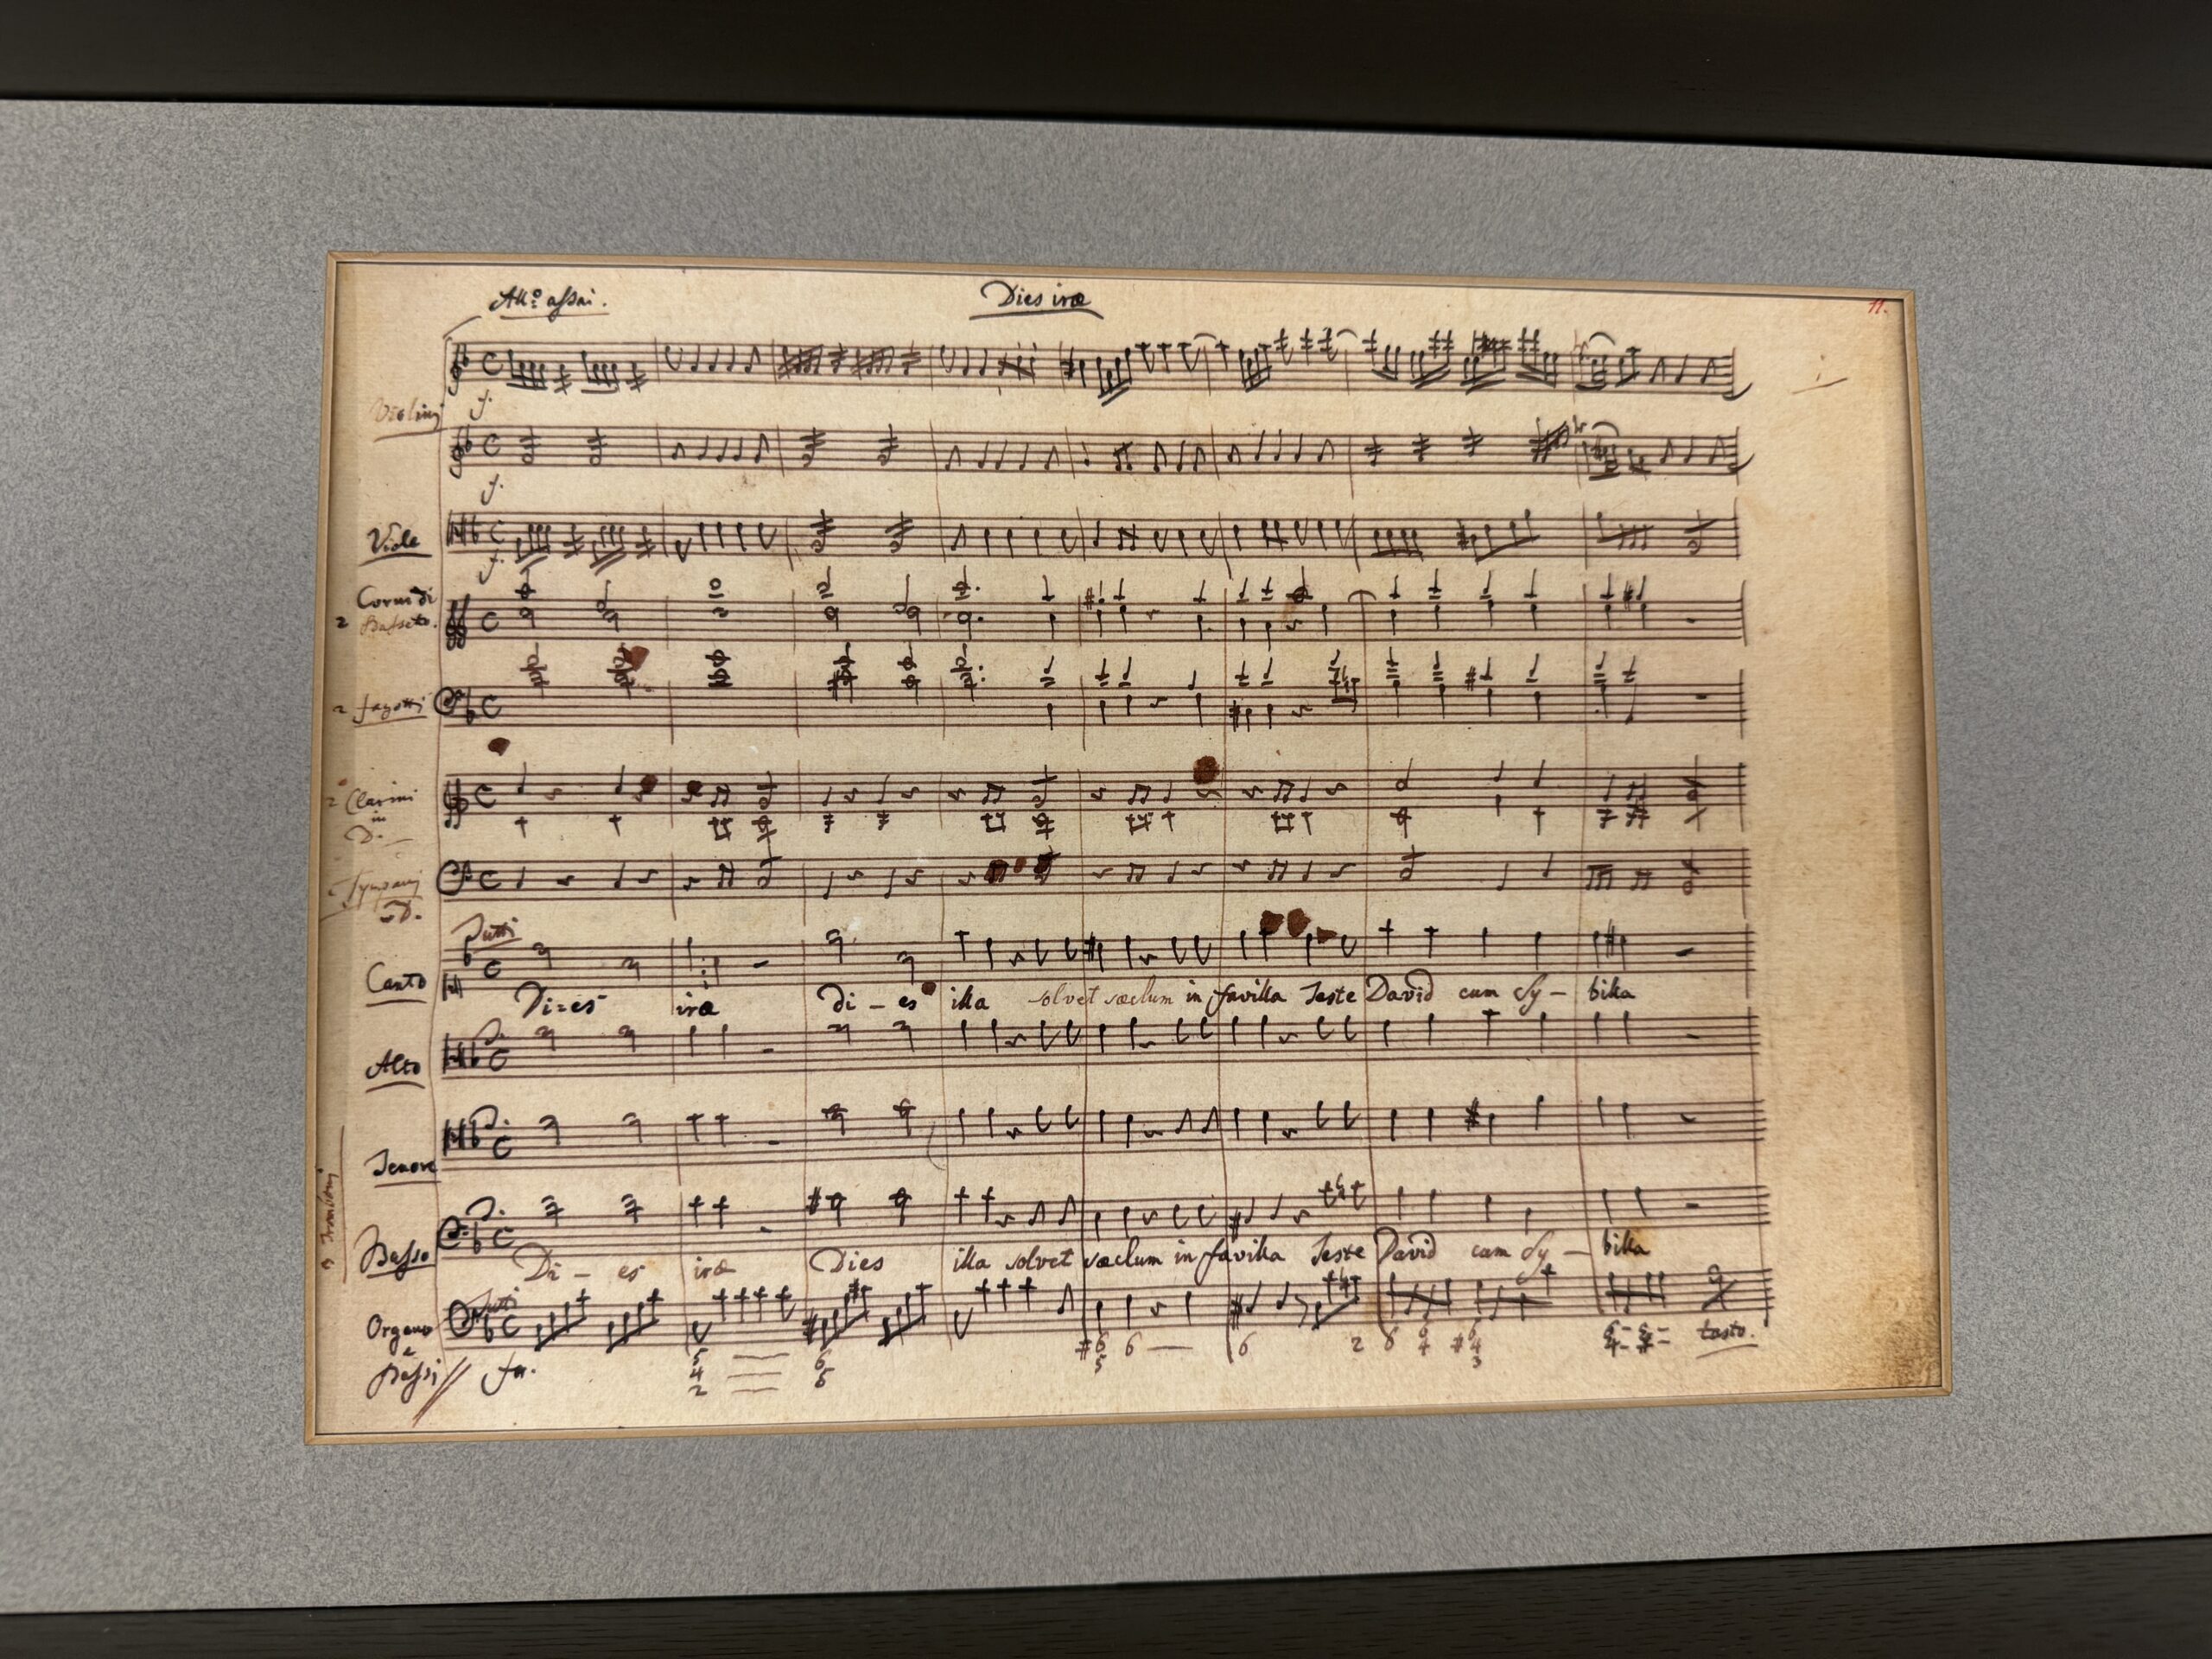 All:o assai.
Dies iræ
11.
Violini
f.
f.
Viole
f.
2 Corni di
Bassetto.
2 fagotti
2 Clarini
in
D.
Tympani
D.
Tutti
Canto
Di=es iræ di – es illa solvet sæclum in favilla Teste David cum Sy – billa
Alto
Tenore
3 Tromboni
Basso
Di – es iræ Dies illa solvet sæclum in favilla Teste David cum Sy – billa
Tutti
Organo
e
Bassi
for.
tasto.